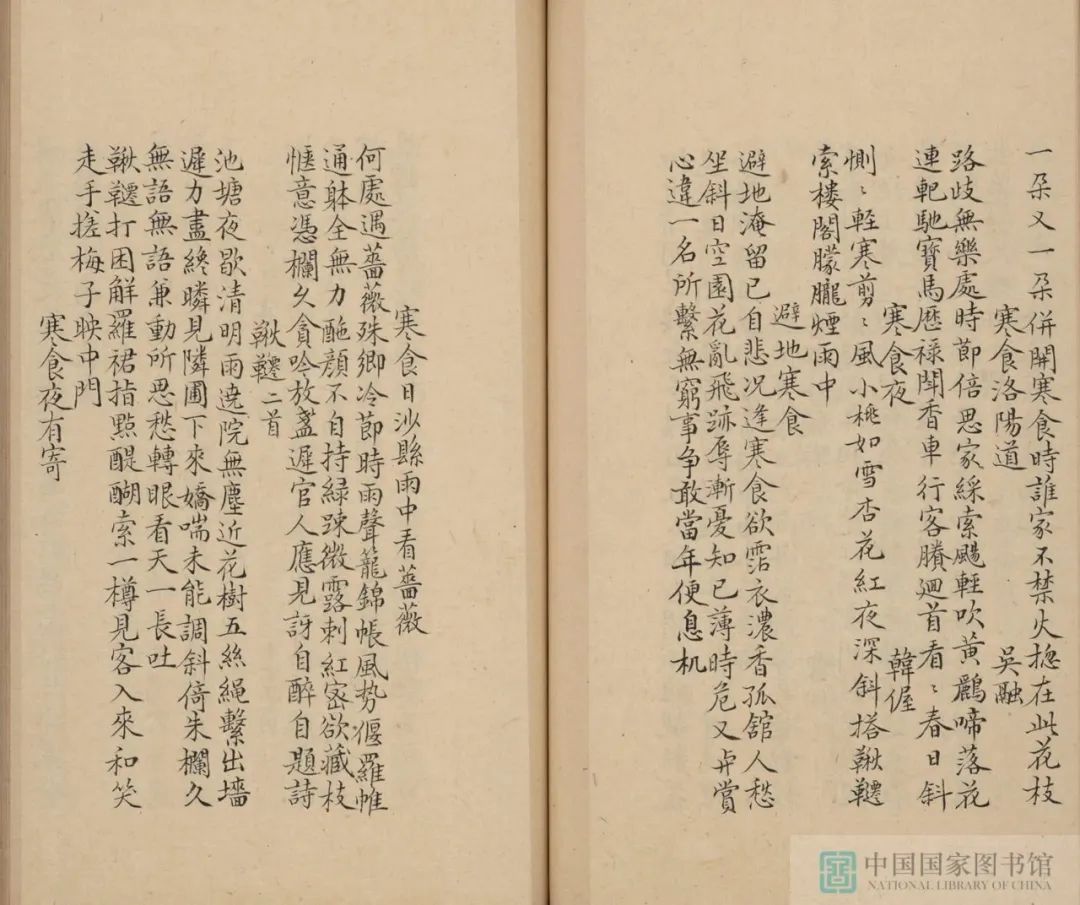 一朵又一朵併開寒食時誰家不禁火揔在此花枝
寒食洛陽道 吳融
路歧無樂處時節倍思家綵索颺輕吹黃鸝啼落花
連軛馳寶馬歷祿聞香車行客賸迴首看〻春日斜
寒食夜 韓偓
惻〻輊寒剪〻風小桃如雪杏花紅夜深斜搭鞦韆
索樓閣朦朧煙雨中
避地寒食
避地淹留已自悲况逢寒食欲霑衣濃香孤舘人愁
坐斜日空園花亂飛跡辱漸憂知已薄時危又弁賞
心違一名所繫無窮事争敢當年便息机
寒食日沙縣雨中看薔薇
何處遇薔薇殊鄉冷節時雨聲籠錦帳風势偃羅帷
通躰全無力酡顔不自持緑踈微露刺紅宻欲藏枝
愜意憑欄久貪吟放盞遲官人應見訝自醉自題詩
鞦韆二首
池塘夜歇清明雨遶院無塵近花樹五絲䋲繫出墻
遲力盡終瞵見隣圃下來嬌喘未能調斜倚朱欄久
無語無語兼動所思愁轉眼看天一長吐
鞦韆打困解羅裙指點醍醐索一樽見客入來和笑
走手搓梅子映中門
寒食夜有寄
中国国家图书馆
NATIONAL LIBRARY OF CHINA